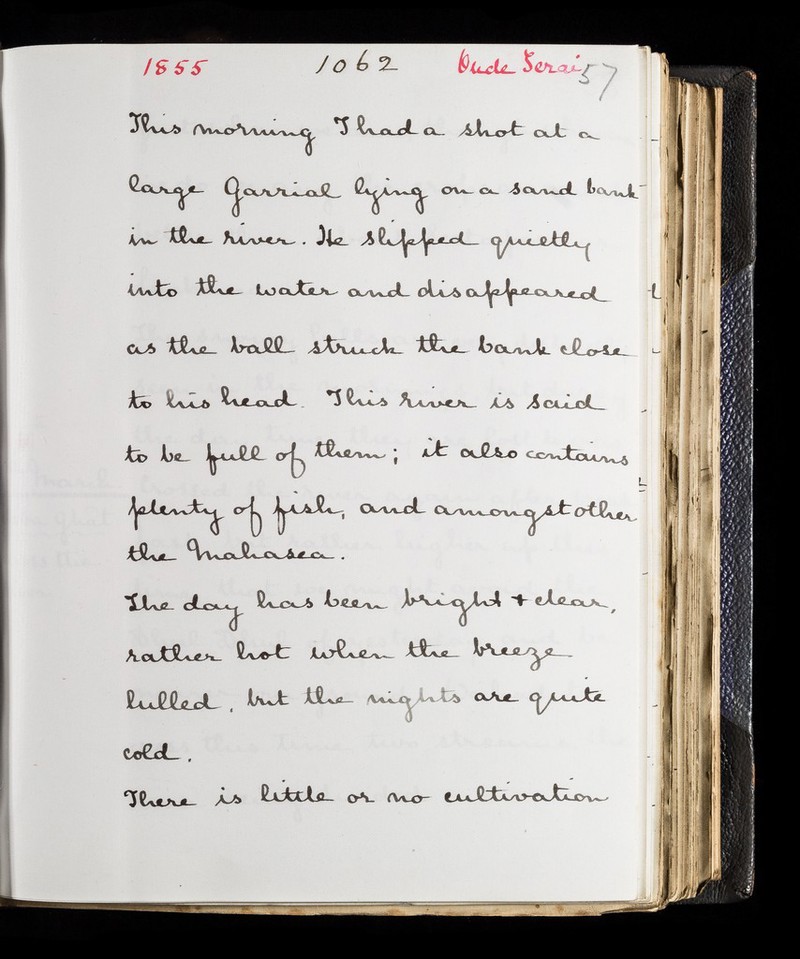 1855 1062 Oude Serai 57
This morning I had a shot at a
large Garrial lying on a sand bank
in the river. He slipped quietly
into the water and disappeared
as the ball struck the bank close
to his head. This river is said
to be full of them; it also contains
plenty of fish, and amongst other
the Mahasea.
The day has been bright + clear,
rather hot when the breeze
lulled, but the nights are quite
cold.
There is little or no cultivation